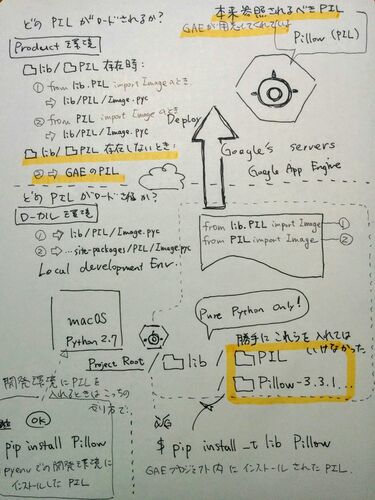 どの PIL がロードされるか?
Product環境
lib/ PIL 存在時:
① from lib.PIL import Image のとき
⇒ lib/PIL/Image.pyc
② from PIL import Image のとき
⇒ lib/PIL/Image.pyc
lib/ PIL 存在しないとき:
② ⇒ GAEのPIL
本来参照されるべきPIL
GAEが用意してくれている
Pillow (PIL)
Deploy
Google's servers
Google App Engine
どの PIL がロードされるか?
ローカル環境
① ⇒ lib/PIL/Image.pyc
② ⇒ ...site-packages/PIL/Image.pyc
Local development Env.
from lib.PIL import Image ①
from PIL import Image ②
Pure Python Only!
macOS
Python 2.7
Project Root / lib /
勝手にこれらを入れては
いけなかった
PIL
Pillow-3.3.1...
開発環境にPILを
入れるときはこっちの
やり方で.
OK
pip install Pillow
pyenvでの開発環境に
インストールした PIL
NG
$ pip install -t lib Pillow
GAEプロジェクト内にインストールされたPIL.